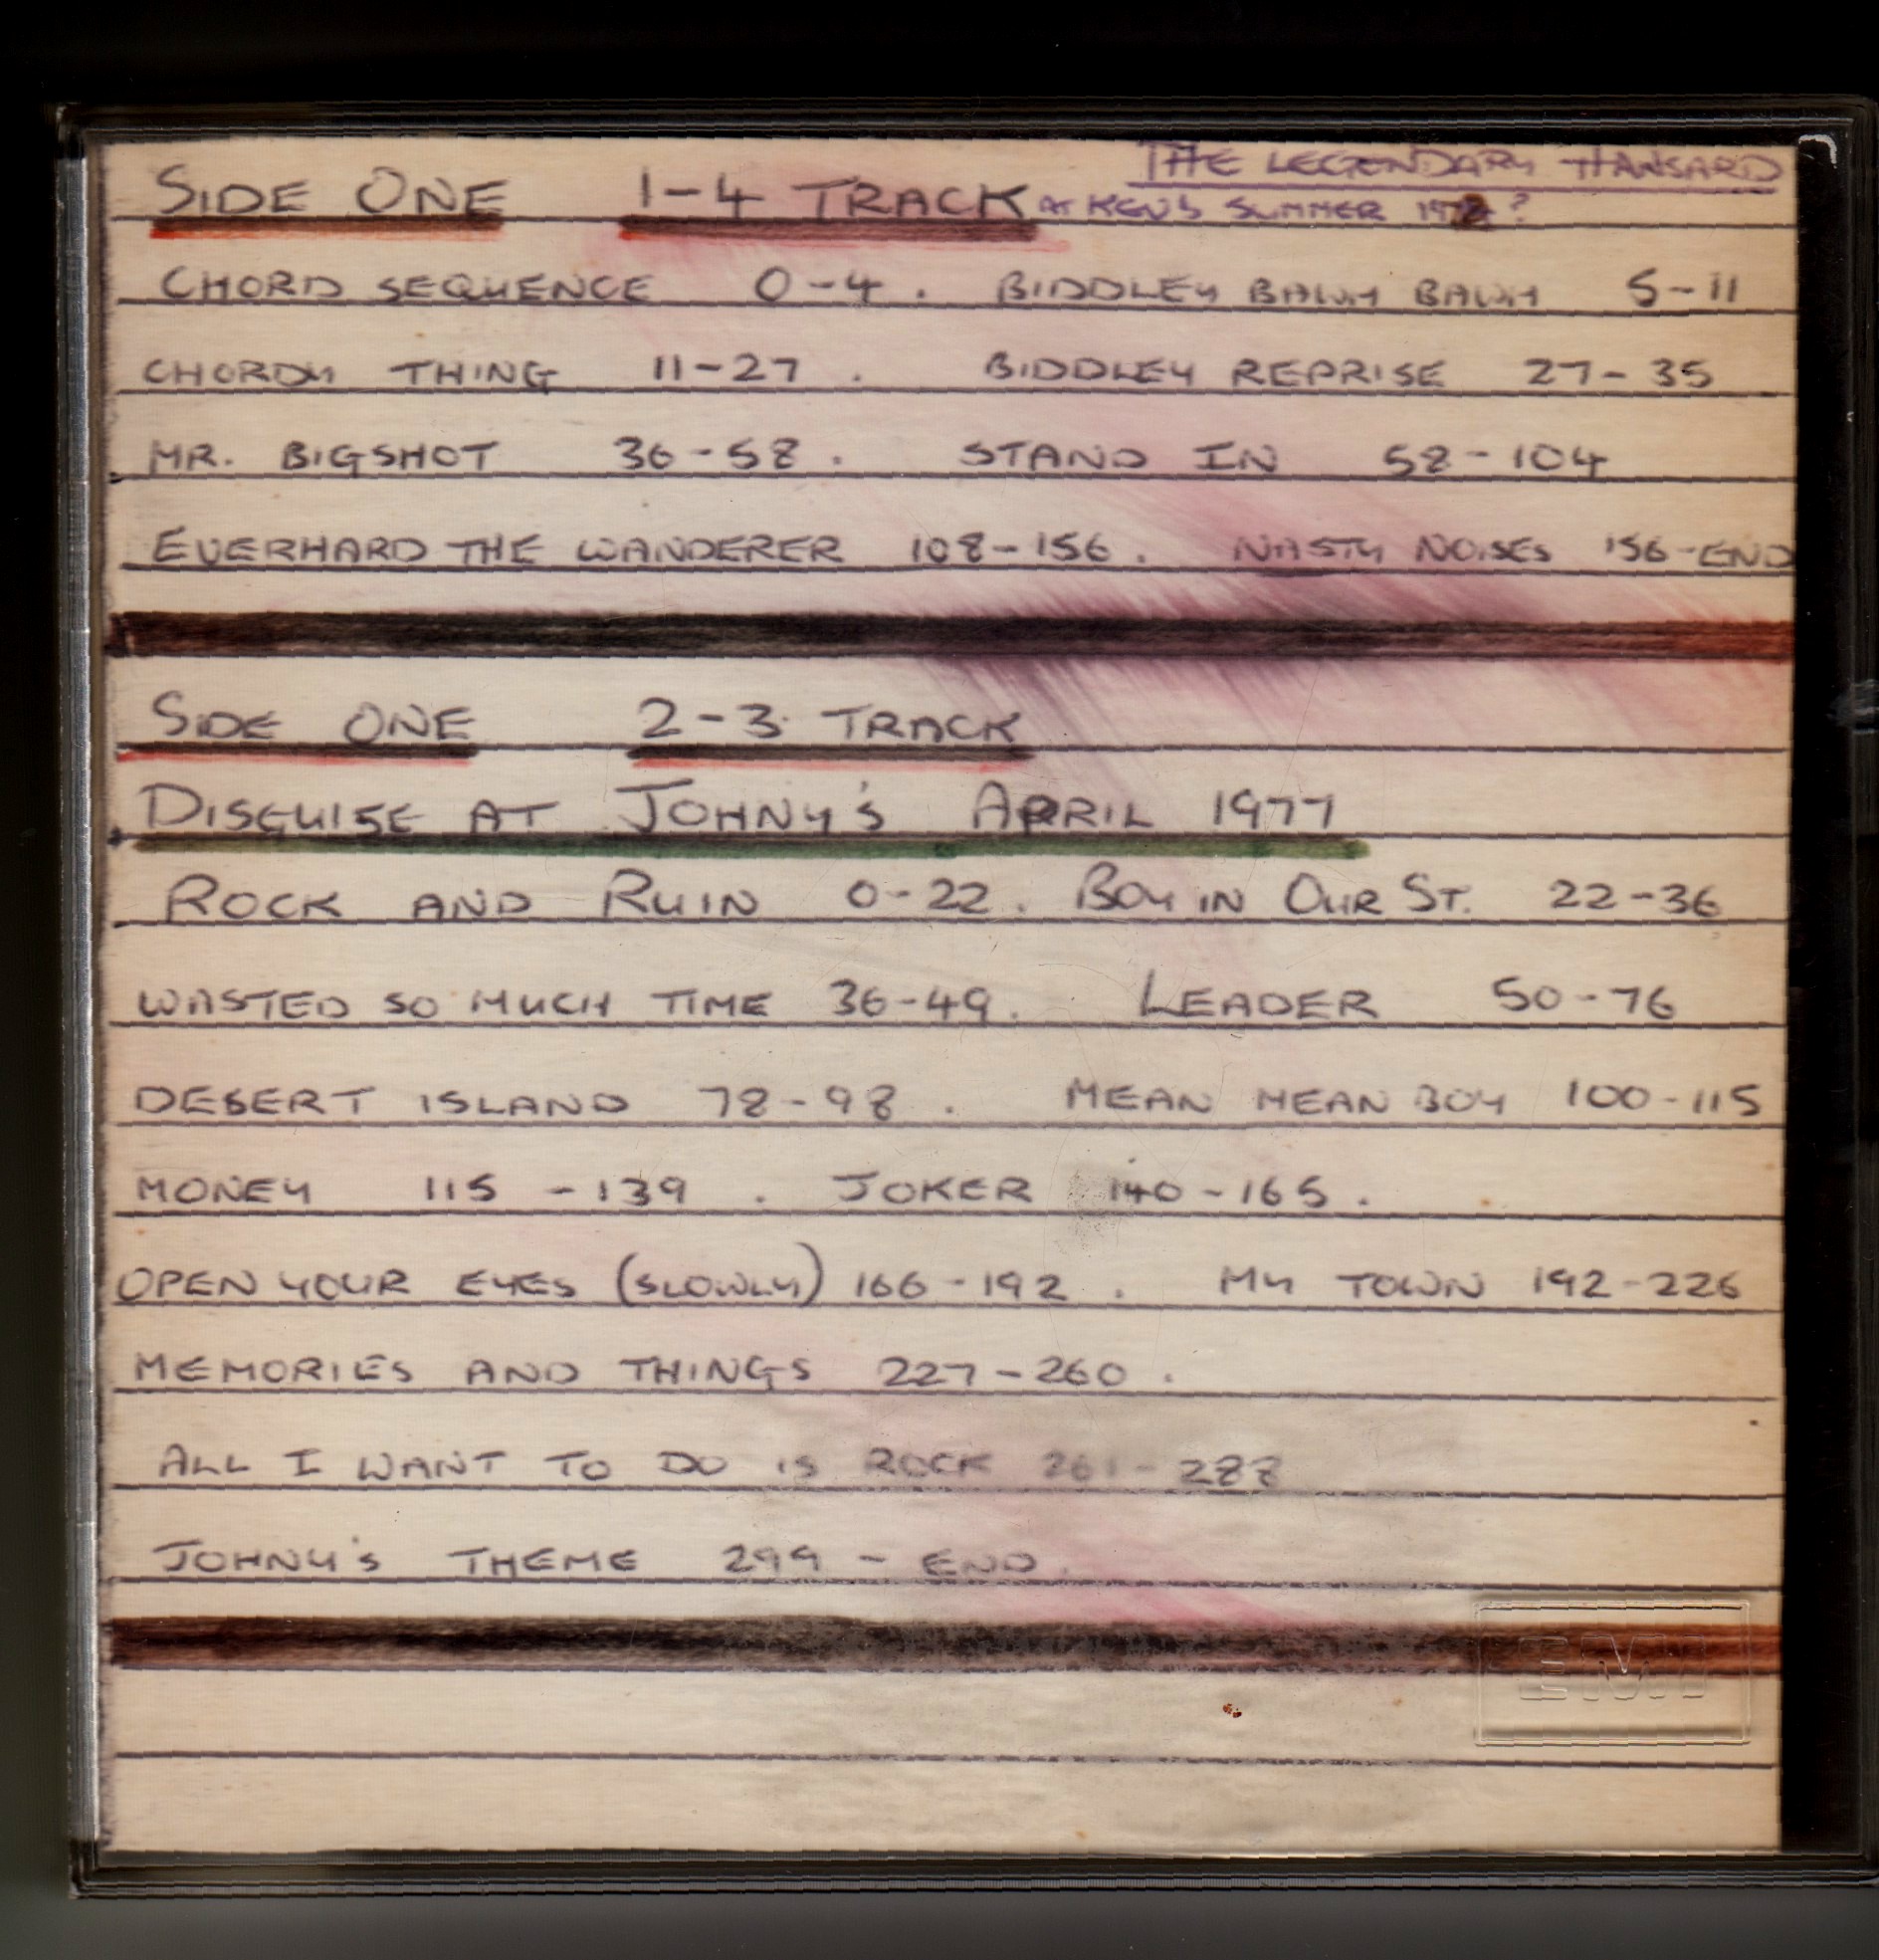 THE LEGENDARY HANSARD
SIDE ONE 1-4 TRACK AT KEN'S SUMMER ?
CHORD SEQUENCE 0-4. BIDDLEY BAWH BAWH 5-11
CHORDY THING 11-27. BIDDLEY REPRISE 27-35
MR. BIGSHOT 36-58. STAND IN 58-104
EVERHARD THE WANDERER 108-156. NASTY NOISES 156-END
SIDE ONE 2-3 TRACK
DISGUISE AT JOHNY'S APRIL 1977
ROCK AND RUIN 0-22. BOY IN OUR ST. 22-36
WASTED SO MUCH TIME 36-49. LEADER 50-76
DESERT ISLAND 78-98. MEAN MEAN BOY 100-115
MONEY 115-139. JOKER 140-165.
OPEN YOUR EYES (SLOWLY) 166-192. MY TOWN 192-226
MEMORIES AND THINGS 227-260.
ALL I WANT TO DO IS ROCK 261-288
JOHNY'S THEME 299-END.
EMI